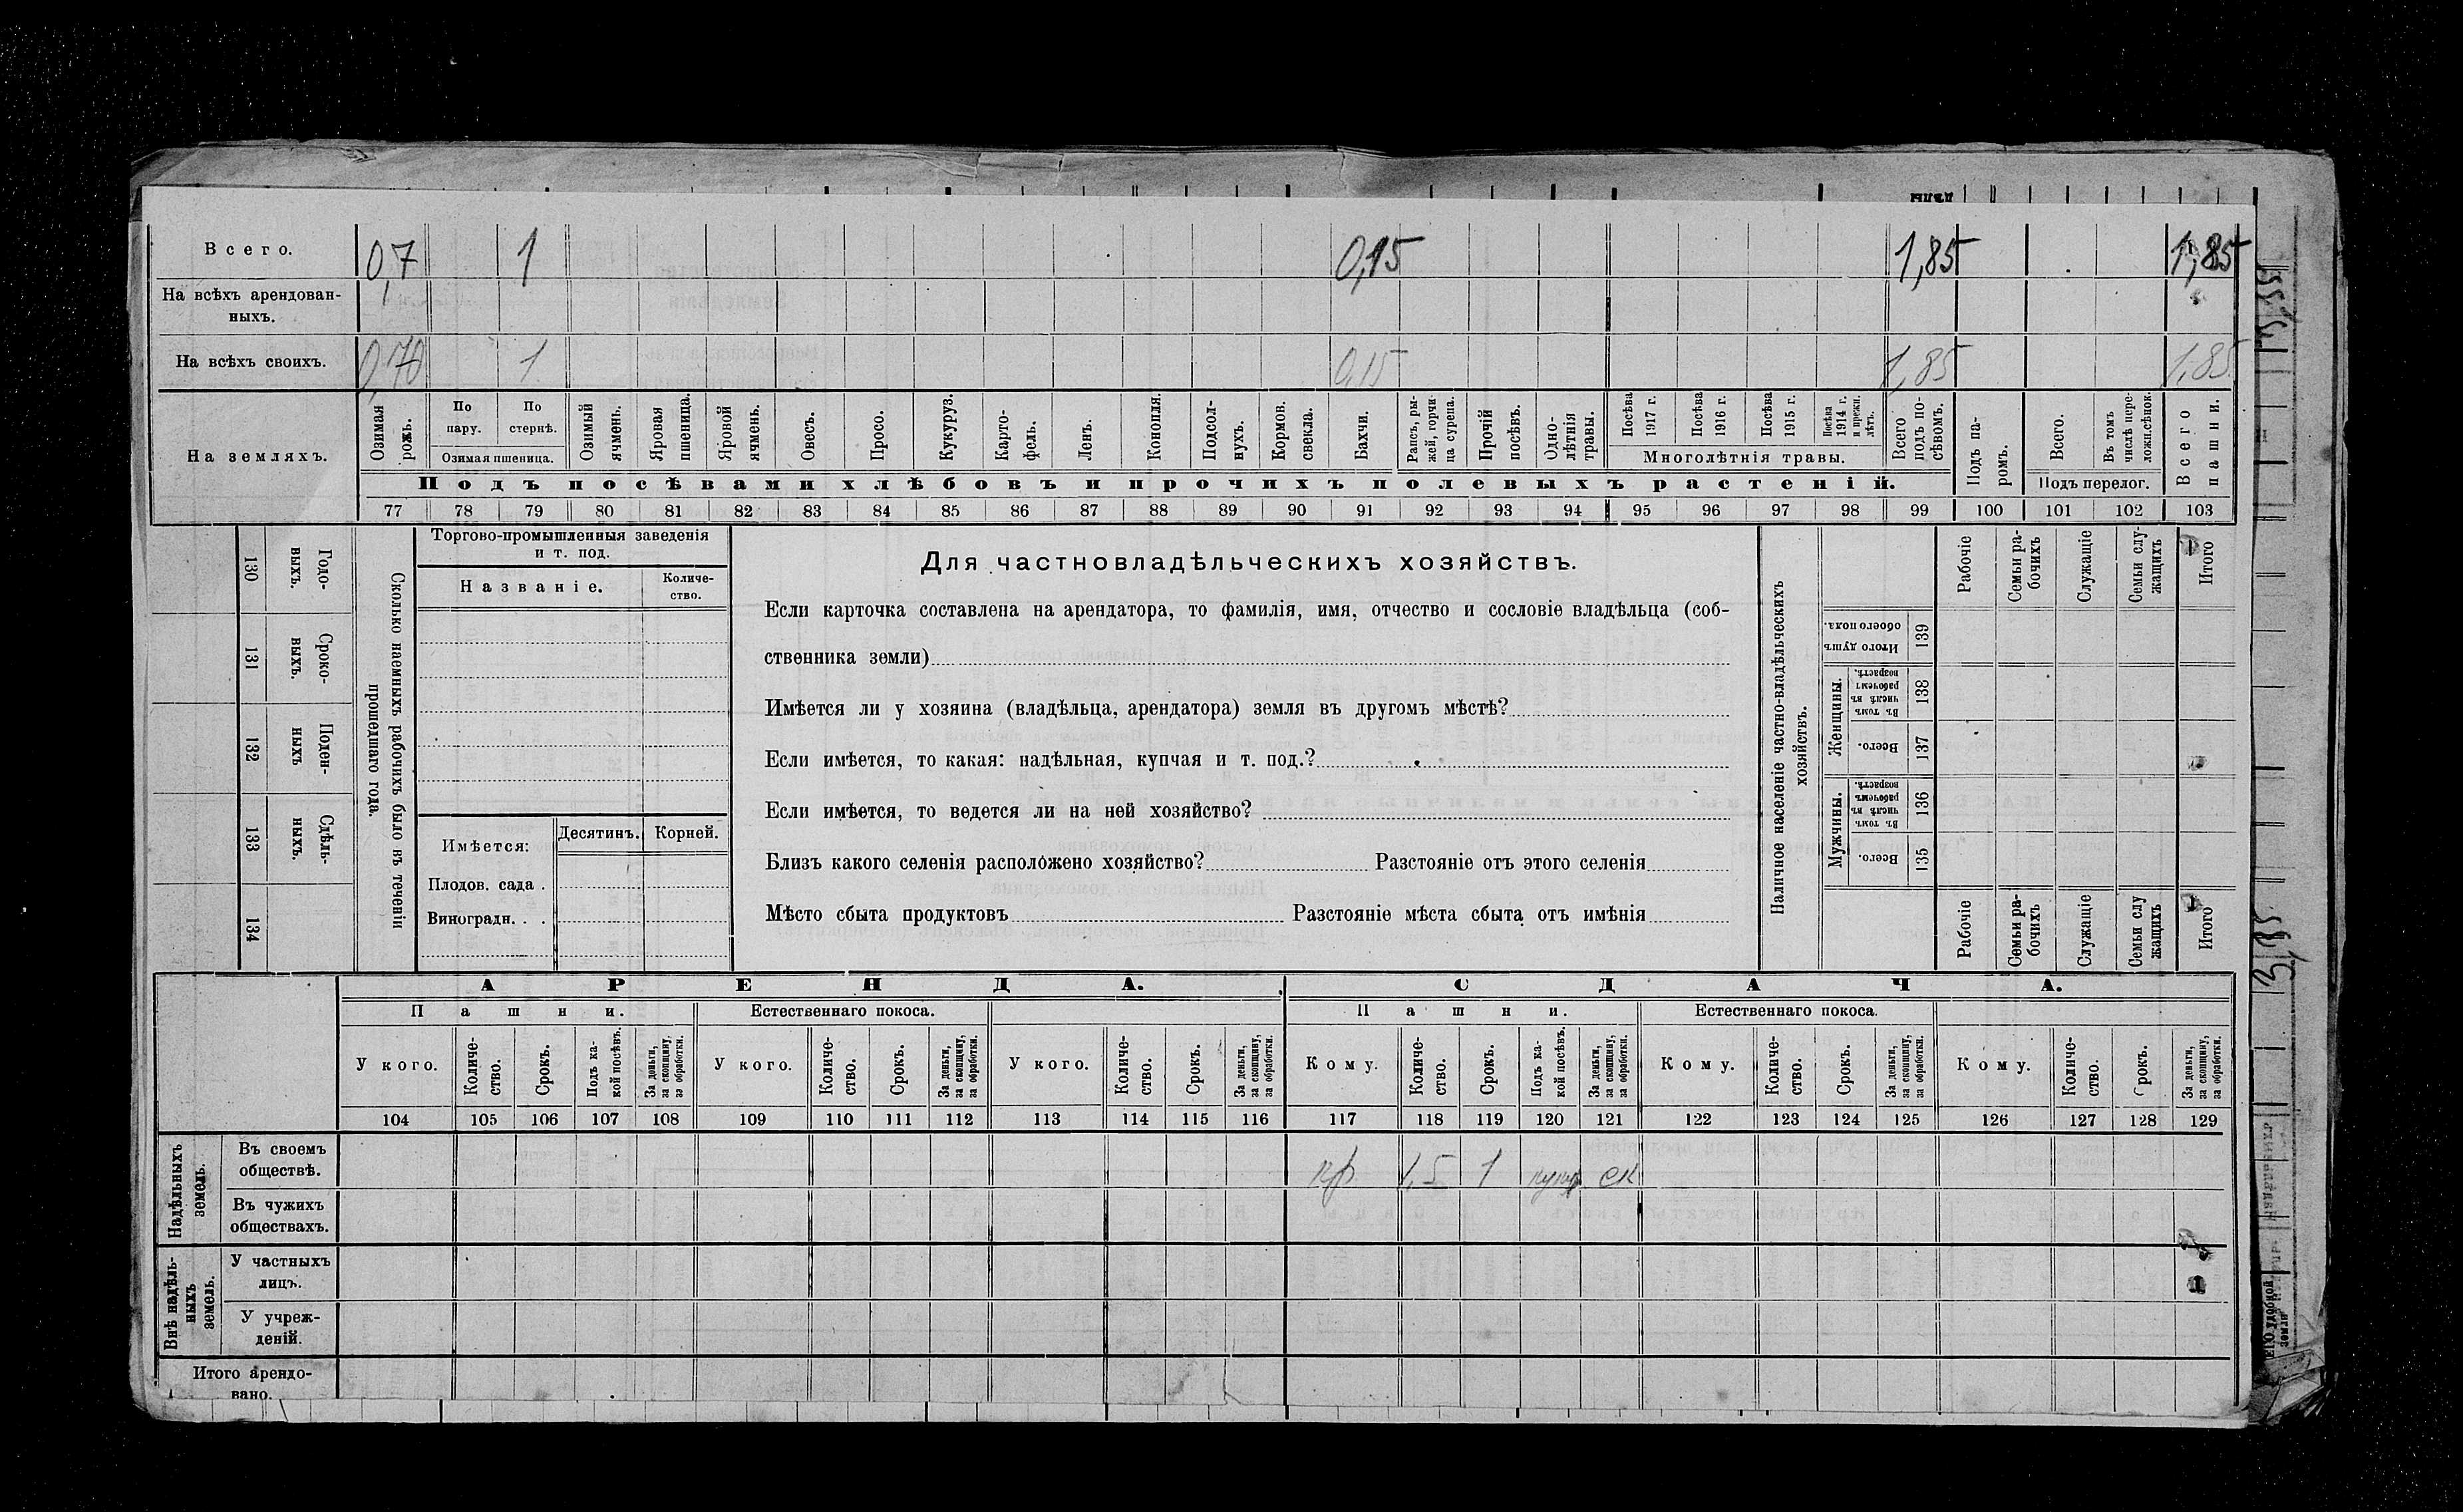 Всего. 0,7 1 0,15 1,85 1,85
На всѣхъ арендован-
ныхъ.
На всѣхъ своихъ. 0,70 1 0,15 1,85 1,85
На земляхъ.
Озимая рожь.
По пару.
По стернѣ.
Озимая пшеница.
Озимый ячмень.
Яровая пшеница.
Яровой ячмень.
Овесъ.
Просо.
Кукуруз.
Карто-
фель.
Ленъ.
Конопля.
Подсол-
нухъ.
Кормов. свекла.
Бахчи.
Рапсъ, ры-
жей, горчи-
ца сурепа.
Прочій посѣвъ.
Одно-
лѣтнія травы.
Посѣва 1917 г.
Посѣва 1916 г.
Посѣва 1915 г.
Посѣва 1914 г. и прежн. лѣтъ.
Многолѣтнія травы.
Всего подъ по-
сѣвомъ.
Подъ па-
ромъ.
Всего.
Въ томъ числѣ пере-
ложн.сѣнок.
Подъ перелог.
Всего пашни.
Подъ посѣвами хлѣбовъ и прочихъ полевыхъ растеній.
77 78 79 80 81 82 83 84 85 86 87 88 89 90 91 92 93 94 95 96 97 98 99 100 101 102 103
Сколько наемныхъ рабочихъ было въ теченіи
прошедшаго года.
Годо-
выхъ.
130
Сроко-
выхъ.
131
Поден-
ныхъ
132
Сдѣль-
ныхъ.
133
134
Торгово-промышленныя заведенія
и т. под.
Названіе.
Количе-
ство.
Имѣется:
Десятинъ.
Корней.
Плодов. сада .
Виноградн. . .
Для частновладѣльческихъ хозяйствъ.
Если карточка составлена на арендатора, то фамилія, имя, отчество и сословіе владѣльца (соб-
ственника земли)
Имѣется ли у хозяина (владѣльца, арендатора) земля въ другомъ мѣстѣ?
Если имѣется, то какая: надѣльная, купчая и т. под.?
Если имѣется, то ведется ли на ней хозяйство?
Близъ какого селенія расположено хозяйство? Разстояніе отъ этого селенія
Мѣсто сбыта продуктовъ Разстояніе мѣста сбыта отъ имѣнія
Наличное населеніе частно-владѣльческихъ
хозяйствъ.
Рабочіе
Семьи ра-
бочихъ
Служащіе
Семьи слу-
жащихъ
Итого
Итого душъ
обоего пола.
139
Женщины.
Въ томъ числѣ въ рабочемъ возрастѣ.
138
Всего.
137
Мужчины.
Въ томъ числѣ въ рабочемъ возрастѣ.
136
Всего.
135
Рабочіе
Семьи ра-
бочихъ
Служащіе
Семьи слу
жащихъ
Итого
АРЕНДА. СДАЧА.
Пашни. Естественнаго покоса. Пашни. Естественнаго покоса.
У кого.
Количе-
ство.
Срокъ.
Подъ ка-
кой посѣвъ.
За деньги,
за скопщину,
за обработки.
У кого.
Количе-
ство.
Срокъ.
За деньги,
за скопщину,
за обработки.
У кого.
Количе-
ство.
Срокъ.
За деньги,
за скопщину,
за обработки.
Кому.
Количе-
ство.
Срокъ.
Подъ ка-
кой посѣвъ.
За деньги,
за скопщину,
за обработки.
Кому.
Количе-
ство.
Срокъ.
За деньги,
за скопщину,
за обработки.
Кому.
Количе-
ство.
Срокъ.
За деньги,
за скопщину,
за обработки.
104 105 106 107 108 109 110 111 112 113 114 115 116 117 118 119 120 121 122 123 124 125 126 127 128 129
Надѣльныхъ
земель.
Въ своемъ
обществѣ.
кр 1,5 1 ск
Въ чужихъ
обществахъ.
Внѣ надѣль-
ныхъ
земель.
У частныхъ
лицъ.
У учреж-
деній.
Итого арендо-
вано.